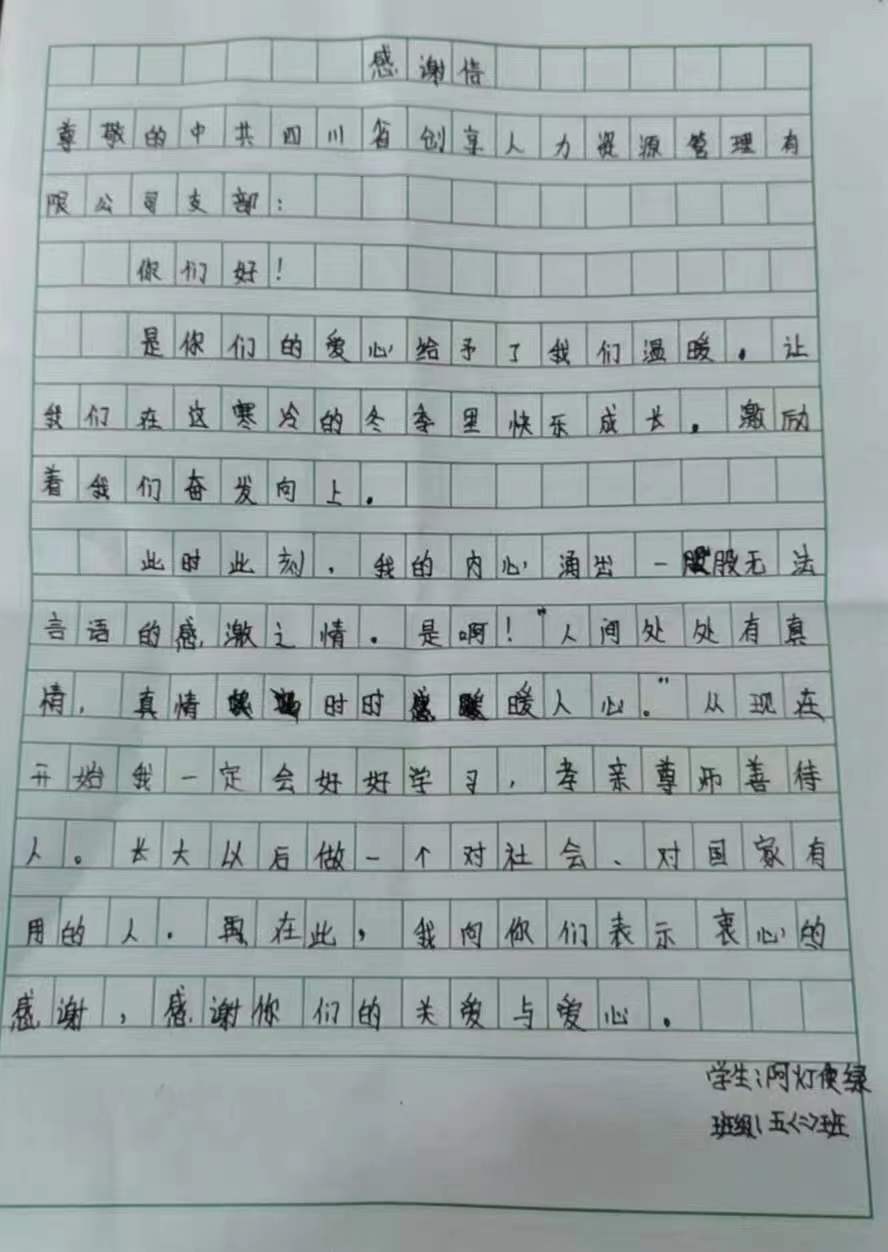 感谢信
尊敬的中共四川省创享人力资源管理有
限公司支部：
你们好！
是你们的爱心给予了我们温暖。让
我们在这寒冷的冬季里快乐成长。激励
着我们奋发向上。
此时此刻，我的内心涌出一股股无法
言语的感激之情。是啊！“人间处处有真
情，真情时时暖人心。”从现在
开始我一定会好好学习，孝亲尊师善待
人。长大以后做一个对社会、对国家有
用的人。再在此，我向你们表示衷心的
感谢，感谢你们的关爱与爱心。
学生：阿灯使绿
班级：五〈二〉班